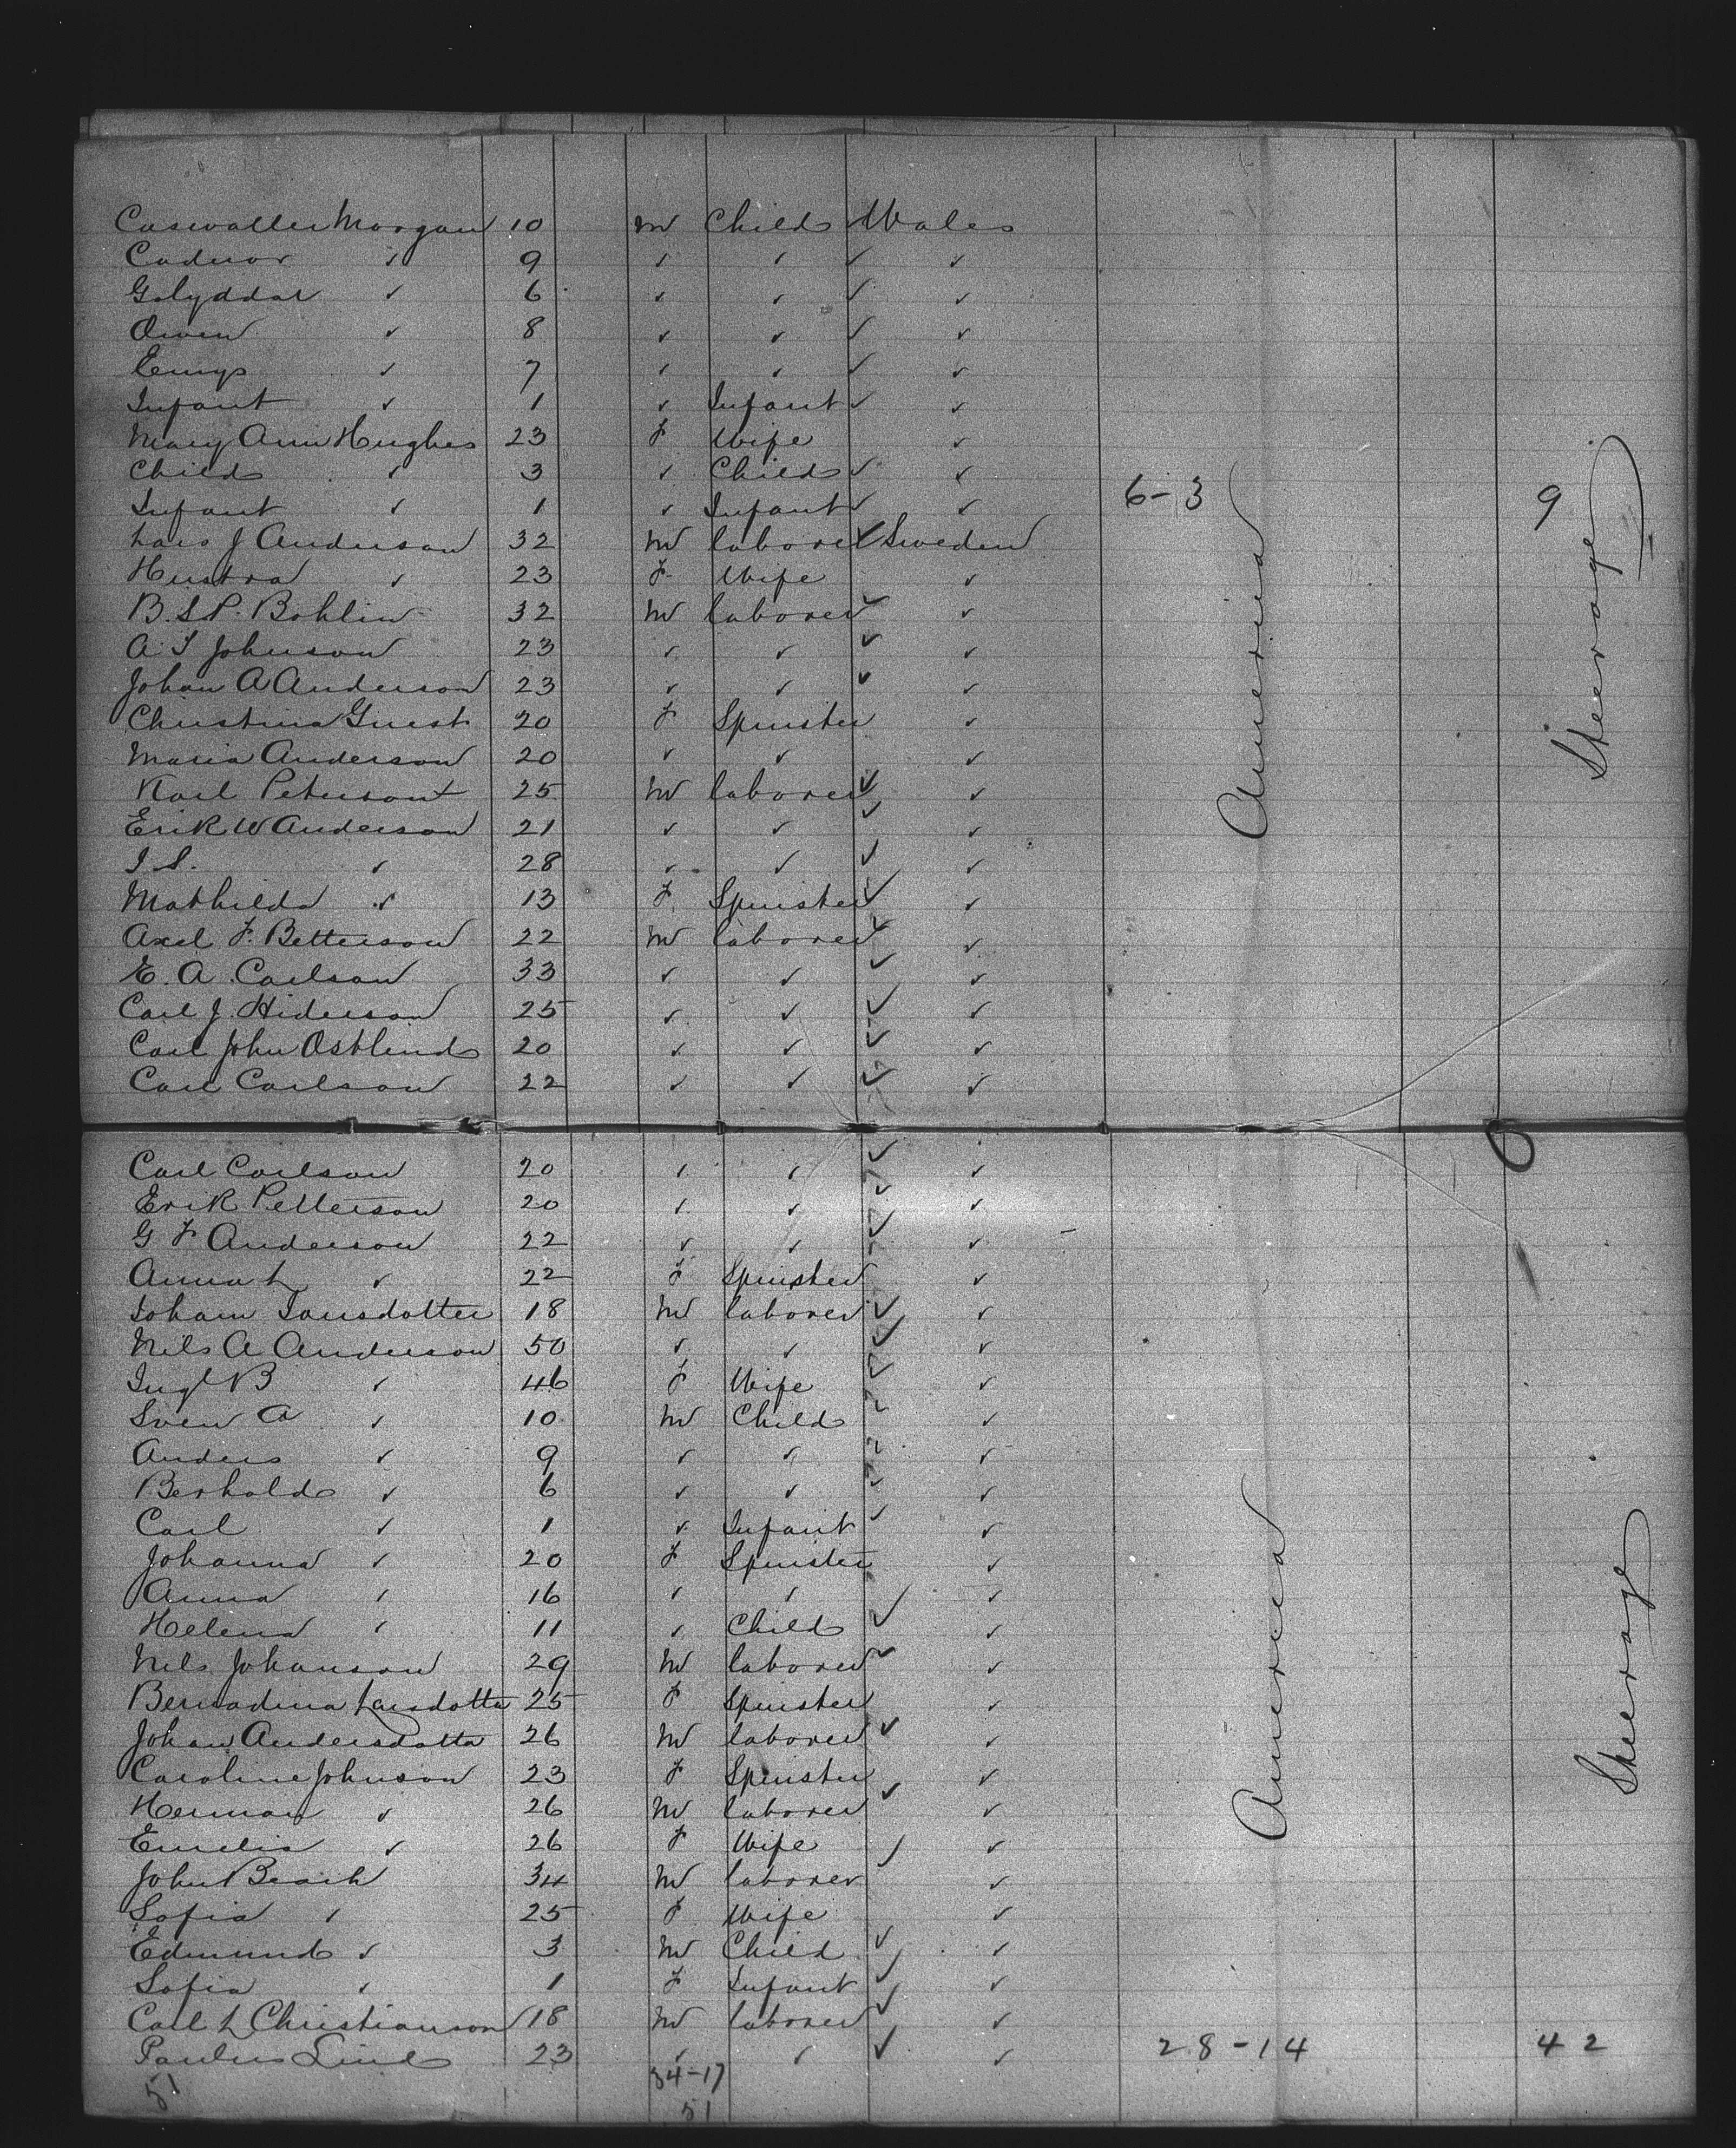 Caswaller Morgan 10 M Child Wales
Cadwor ✓ 9 ✓ ✓ ✓ ✓
Golyddar ✓ 6 ✓ ✓ ✓ ✓
Owen ✓ 8 ✓ ✓ ✓ ✓
Emys ✓ 7 ✓ ✓ ✓ ✓
Infant ✓ 1 ✓ Infant ✓ ✓
Mary Ann Hughes 23 F Wife ✓
Child ✓ 3 ✓ Child ✓ ✓
Infant ✓ 1 ✓ Infant ✓ ✓ 6-3 9
Lars J Anderson 32 M laborer ✓ Sweden
Hustra ✓ 23 F Wife ✓
B.S.P. Bohlin 32 M laborer ✓ ✓
A. T Johnson 23 ✓ ✓ ✓ ✓
Johan A Anderson 23 ✓ ✓ ✓ ✓
Christina Gust 20 F Spinster ✓
Maria Anderson 20 ✓ ✓ ✓
Karl Peterson 25 M laborer ✓ ✓
Erik W Anderson 21 ✓ ✓ ✓ ✓
I S. ✓ 28 ✓ ✓ ✓ ✓
Mathilda ✓ 13 F. Spinster ✓ ✓
Axel F. Betterson 22 M laborer ✓ ✓
E. A. Carlson 33 ✓ ✓ ✓ ✓
Carl J. Hiderson 25 ✓ ✓ ✓ ✓
Carl John Ostlind 20 ✓ ✓ ✓ ✓
Carl Carlson 22 ✓ ✓ ✓ ✓
America
Steerage
Carl Carlson 20 ✓ ✓ ✓ ✓
Erik Petterson 20 ✓ ✓ ✓ ✓
G F Anderson 22 ✓ ✓ ✓ ✓
Anna L ✓ 22 F Spinster ✓
Joham Larsdotter 18 M laborer ✓ ✓
Nils A Anderson 50 ✓ ✓ ✓ ✓
B ✓ 46 F Wife ✓ ✓
Sven A ✓ 10 M Child ✓ ✓
Anders ✓ 9 ✓ ✓ ✓ ✓
Berhold ✓ 6 ✓ ✓ ✓ ✓
Carl ✓ 1 ✓ Infant ✓ ✓
Johanna ✓ 20 F Spinster ✓
Anna ✓ 16 ✓ ✓ ✓
Helena ✓ 11 ✓ Child ✓ ✓
Nils Johanson 29 M laborer ✓ ✓
Bernadina Larsdotta 25 F Spinster ✓
Johan Andersdotta 26 M laborer ✓ ✓
Caroline Johnson 23 F Spinster ✓
Herman ✓ 26 M laborer ✓ ✓
Emelia ✓ 26 F Wife ✓ ✓
John Brash 34 M laborer ✓
Sofia ✓ 25 F Wife ✓
Edmund ✓ 3 M Child ✓ ✓
Sofia ✓ 1 F Infant ✓ ✓
Carl L Christianson 18 M laborer ✓ ✓
Paulus Lind 23 ✓ ✓ ✓ ✓ 28-14 42
America
Steerage
51 34-17
51